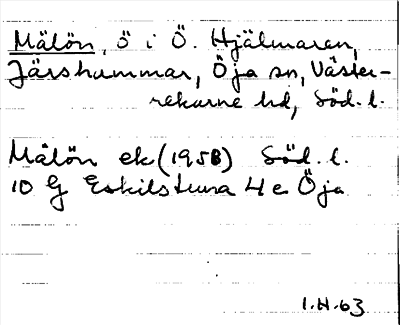 Mälön, ö i Ö. Hjälmaren,
Järshammar, Öja sn, Väster-
rekarne hd, Söd. l.
Mälön ek (1958) Söd. l.
10 G Eskilstuna 4 e Öja
1.H.63